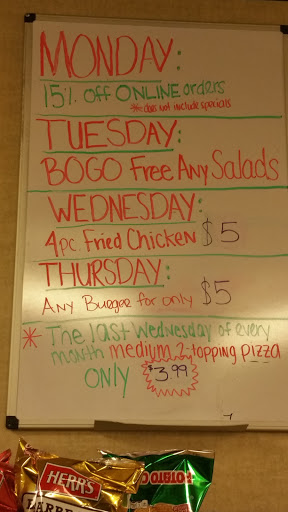 MONDAY:
15% off ONLINE orders
** does not include specials
TUESDAY:
BOGO Free Any Salads
WEDNESDAY:
4pc. Fried Chicken $5
THURSDAY:
Any Burger for only $5
* The last Wednesday of every
month medium 2-topping pizza
ONLY $3.99
HERR'S
POTATO